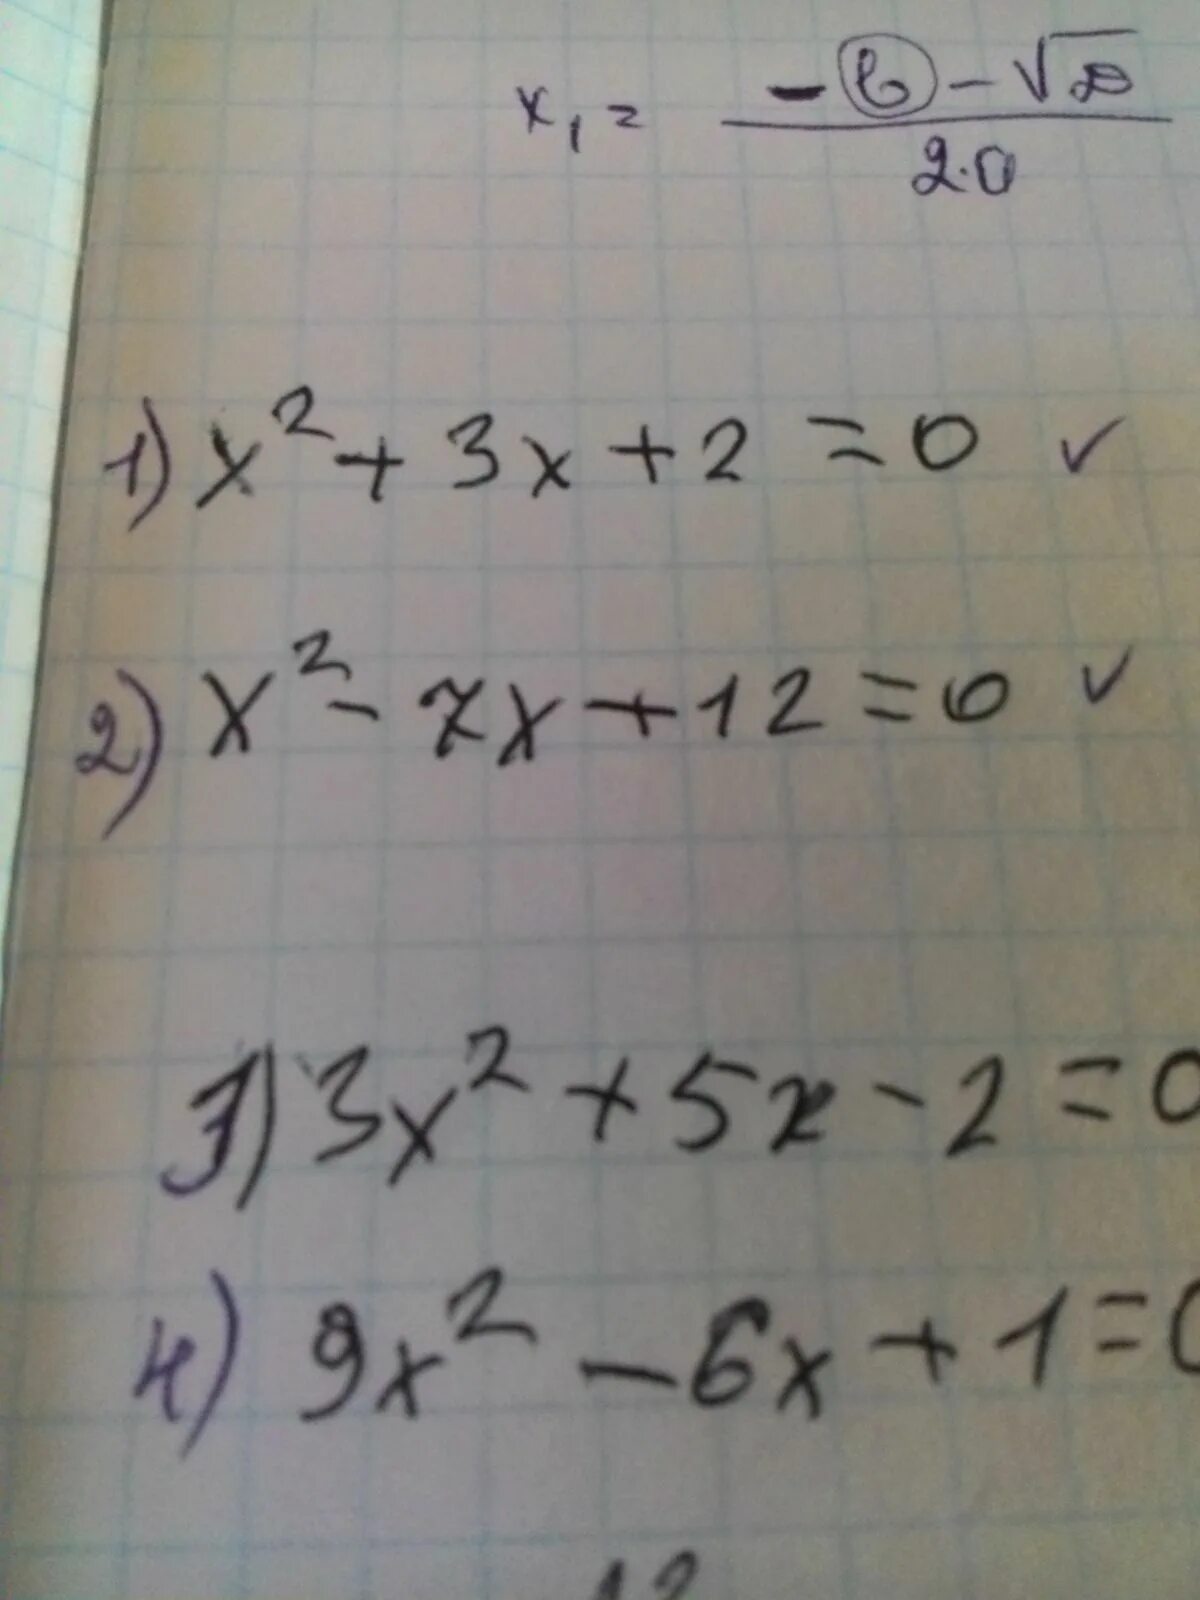 x₁ = (-b - √D) / (2·a)
1) x² + 3x + 2 = 0 ✓
2) x² - 7x + 12 = 0 ✓
3) 3x² + 5x - 2 = 0
4) 9x² - 6x + 1 = 0